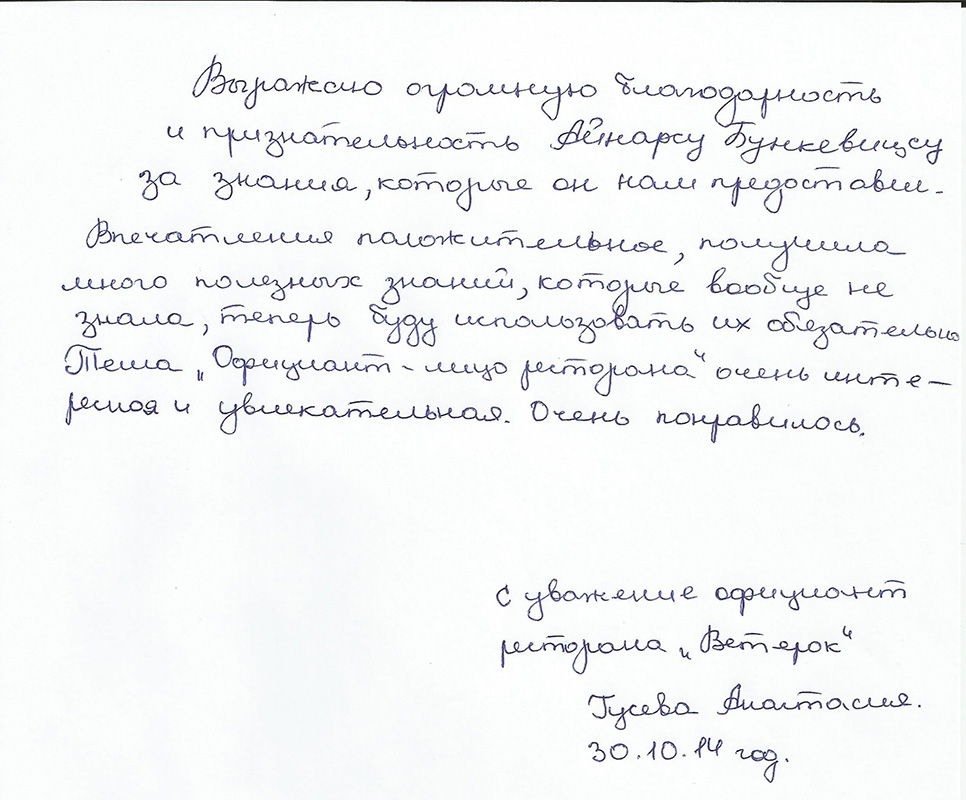 Выражаю огромную благодарность
и признательность Айнарсу Бункевицсу
за знания, которые он нам предоставил.
Впечатления положительное, получила
много полезных знаний, которые вообще не
знала, теперь буду использовать их обязательно
Тема „Официант - лицо ресторана“ очень инте-
ресная и увлекательная. Очень понравилось.
С уважение официант
ресторана „Ветерок“
Гусева Анастасия.
30.10.14 год.